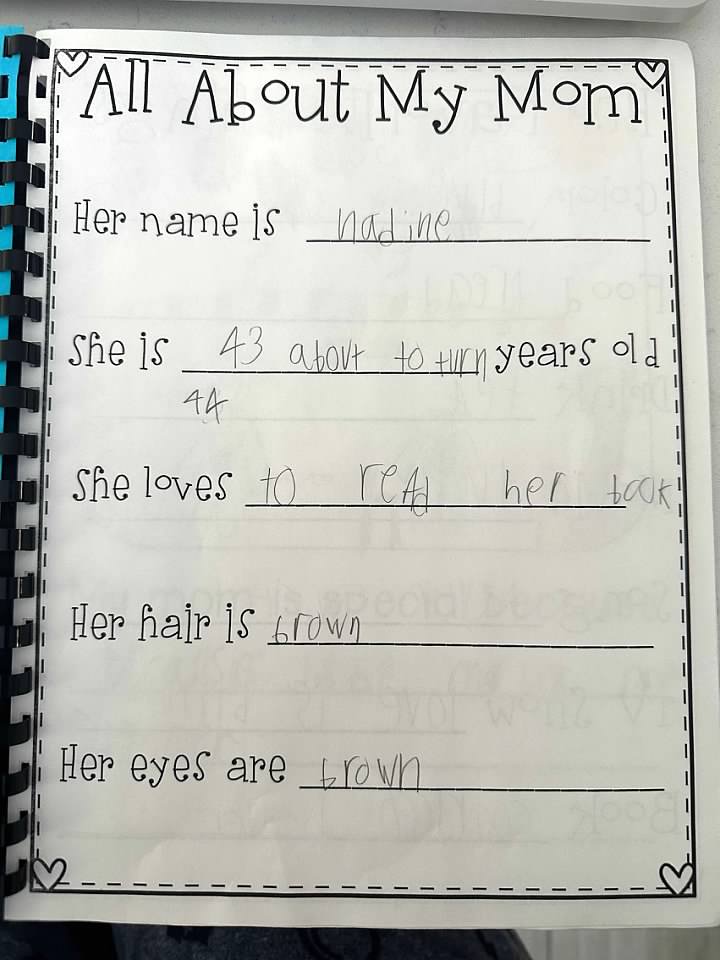 All About My Mom
Her name is nadine
She is 43 about to turn years old
44
She loves to read her book
Her hair is brown
Her eyes are brown